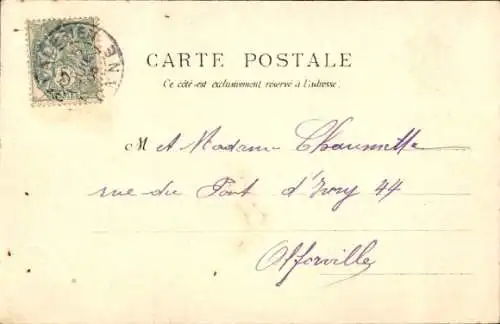 CARTE POSTALE
Ce côté est exclusivement réservé à l'adresse.
M et Madame Chaumette
rue du Pont d'Ivry 44
Alforville